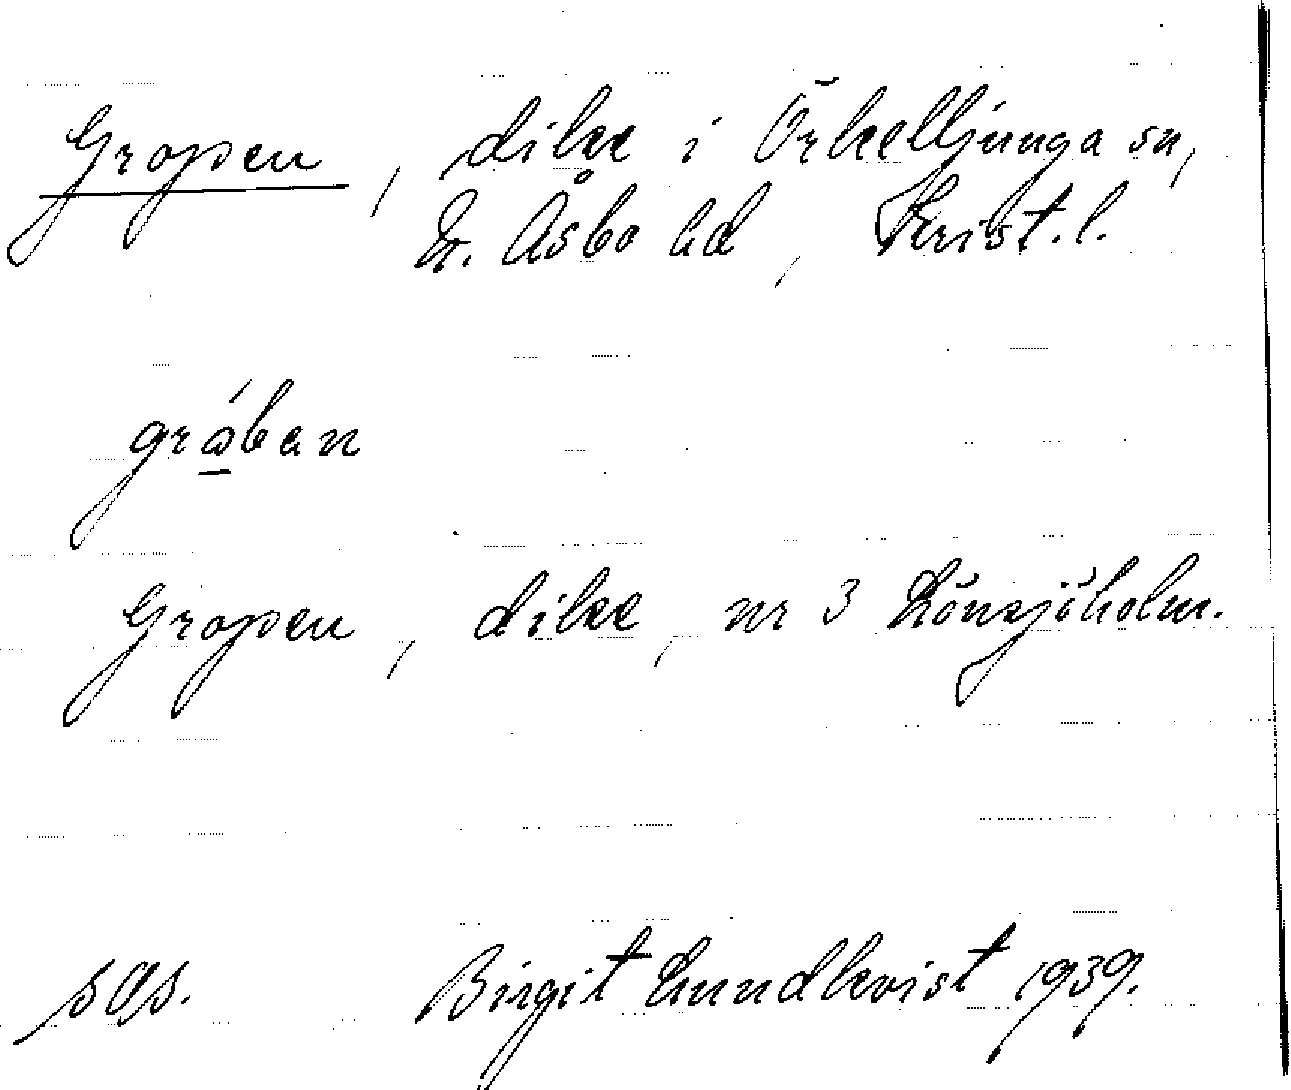 Gropen, dike i Örkelljunga sn,
N. Åsbo hd, Krist. l.
gråban
Gropen, dike, nr 3 Lönsjöholm.
sas.
Birgit Lundkvist 1939.